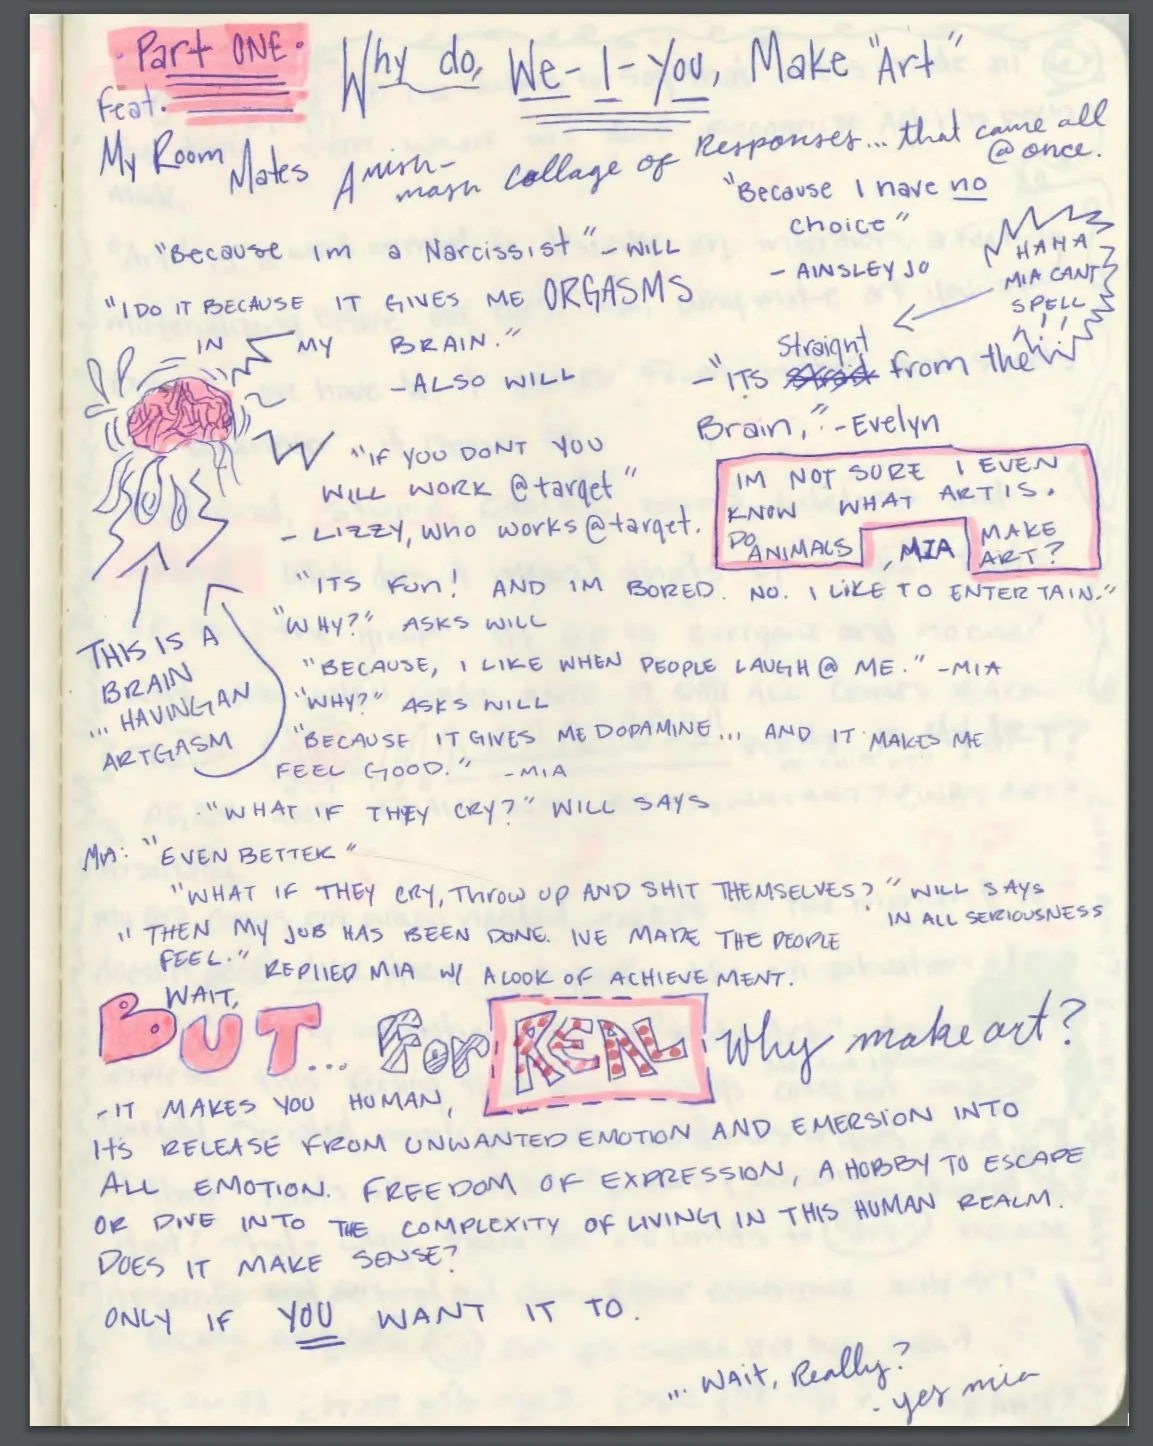 Part ONE.
Why do, We-I-You, Make "Art"
Feat.
My Room Mates
A mish-mash collage of Responses... that came all @ once.
"Because I have no
choice"
- AINSLEY JO
"Because Im a Narcissist" - WILL
"I DO IT BECAUSE IT GIVES ME ORGASMS
IN MY BRAIN."
-ALSO WILL
HAHA
MIA CANT
SPELL
!!!
Straignt
-"ITS from the
Brain," -Evelyn
"IF YOU DONT YOU
WILL WORK @target"
- LIZZY, who works@target.
IM NOT SURE I EVEN
KNOW WHAT ART IS.
DO ANIMALS MAKE ART?
, MIA
"ITS Fun! AND IM BORED. NO. I LIKE TO ENTERTAIN."
"WHY?" ASKS WILL
"BECAUSE, I LIKE WHEN PEOPLE LAUGH @ ME." -MIA
"WHY?" ASKS WILL
"BECAUSE IT GIVES ME DOPAMINE... AND IT MAKES ME
FEEL GOOD." -MIA
THIS IS A
BRAIN
... HAVING AN
ARTGASM
"WHAT IF THEY CRY?" WILL SAYS
MIA: "EVEN BETTER"
"WHAT IF THEY CRY, Throw UP AND SHIT THEMSELVES?" WILL SAYS
IN ALL SERIOUSNESS
"THEN MY JOB HAS BEEN DONE. IVE MADE THE PEOPLE
FEEL." REPLIED MIA W/ A LOOK OF ACHIEVEMENT.
WAIT,
BUT... For REAL Why make art?
-IT MAKES YOU HUMAN,
It's RELEASE FROM UNWANTED EMOTION AND EMERSION INTO
ALL EMOTION. FREEDOM OF EXPRESSION, A HOBBY TO ESCAPE
OR DIVE INTO THE COMPLEXITY OF LIVING IN THIS HUMAN REALM.
DOES IT MAKE SENSE?
ONLY IF YOU WANT IT TO.
... WAIT, Really?
- yes mia